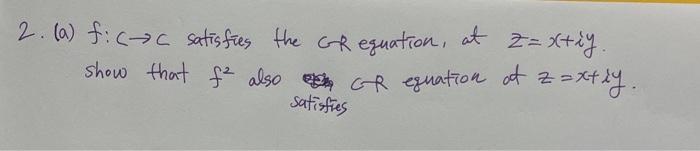 2. (a) f: C→C satisfies the C-R equation, at z=x+iy.
show that f² also C-R equation at z=x+iy.
satisfies